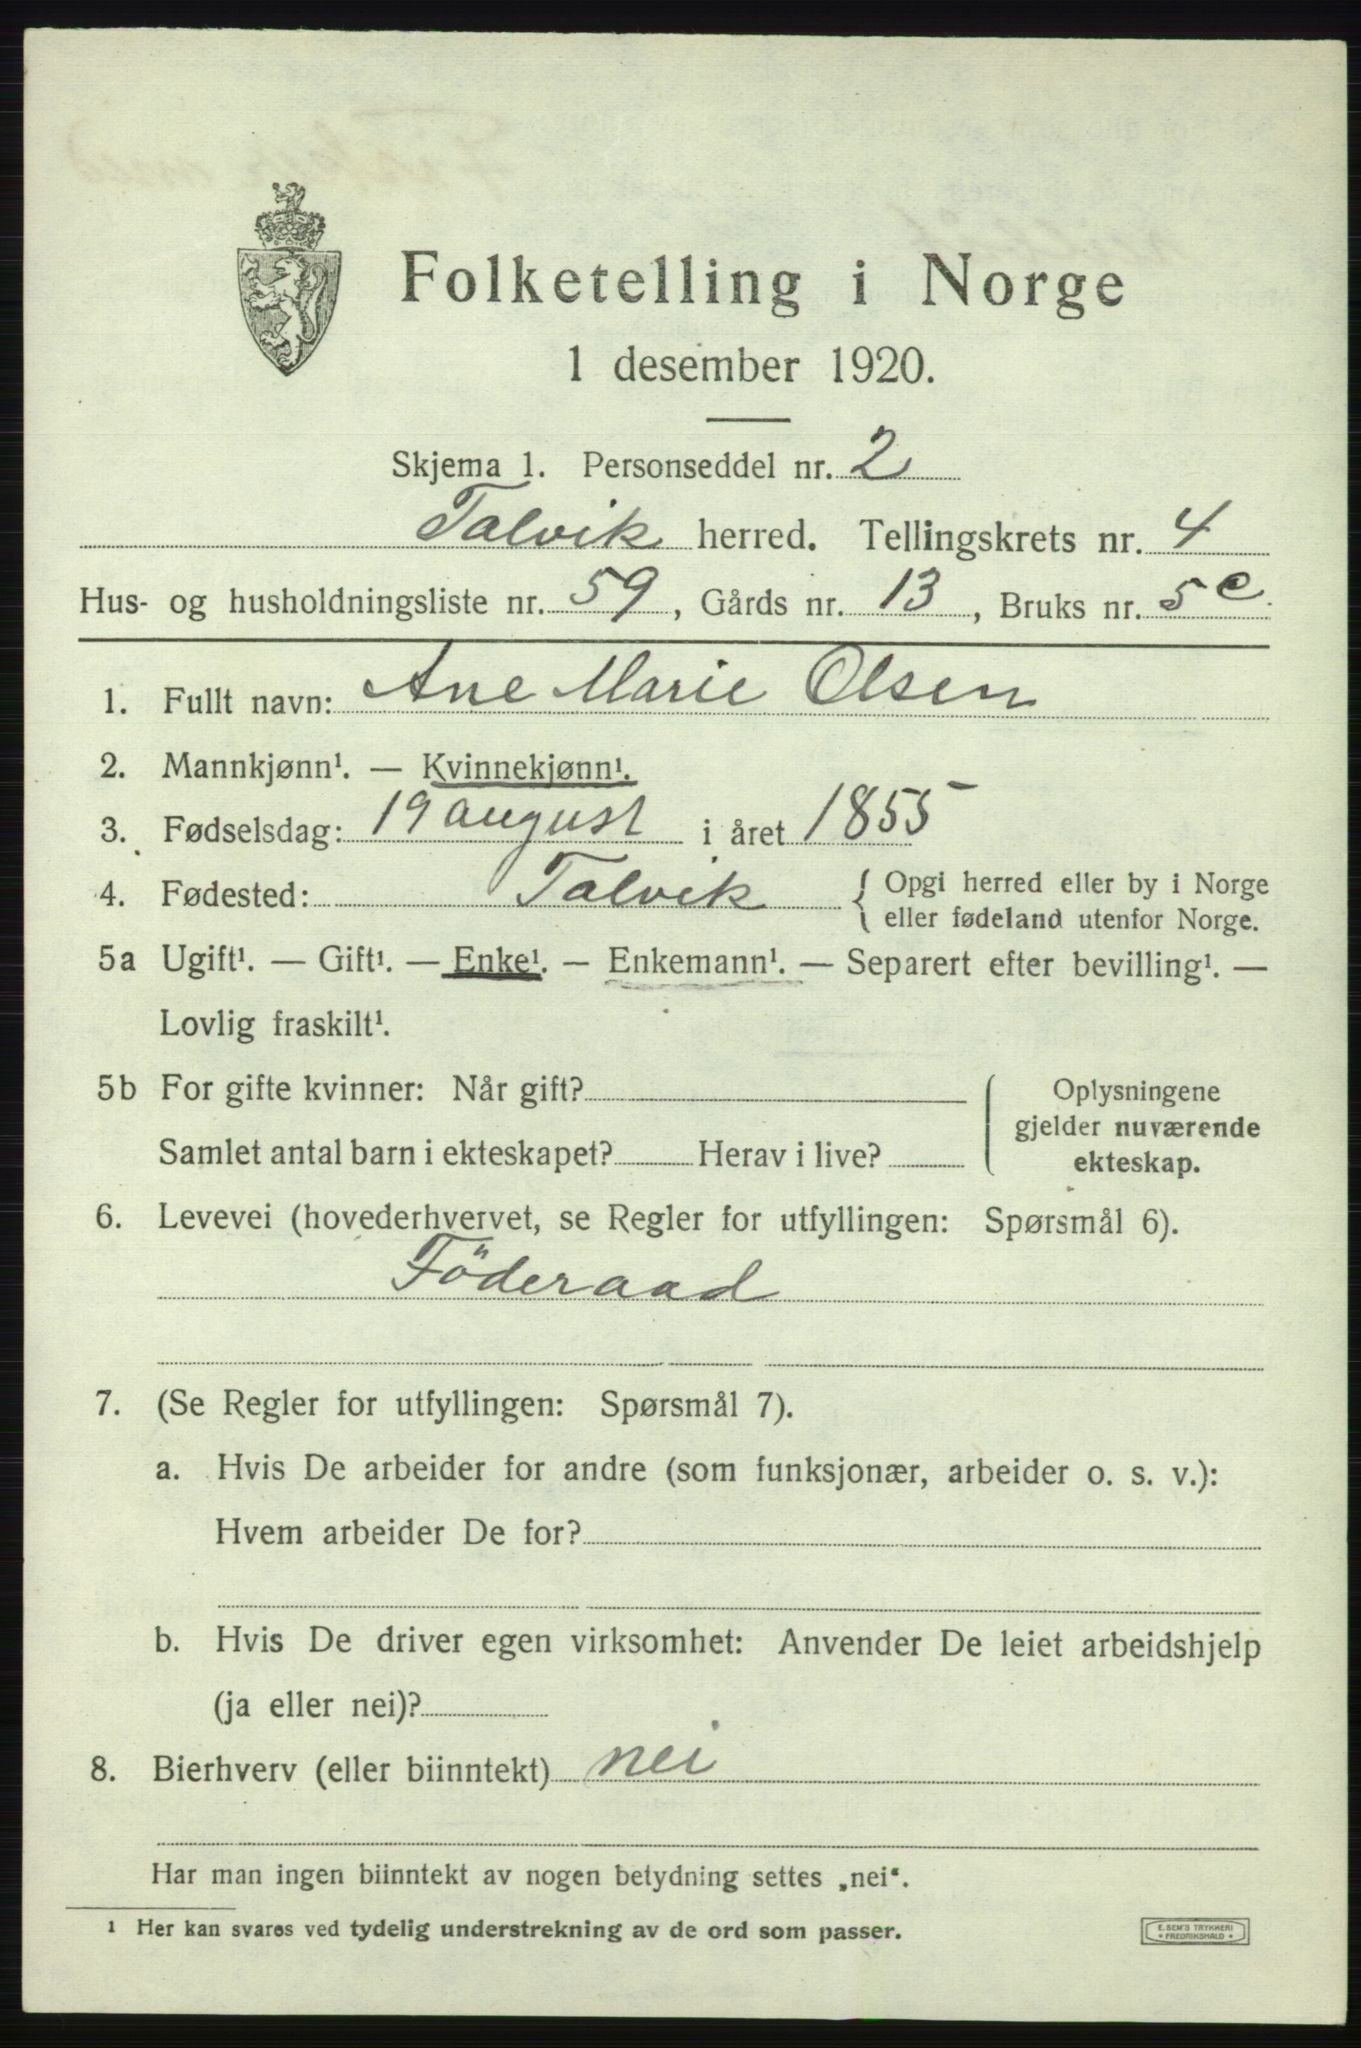 Folketelling i Norge
1 desember 1920.
Skjema 1. Personseddel nr. 2
Talvik herred. Tellingskrets nr. 4
Hus- og husholdningsliste nr. 59, Gårds nr. 13, Bruks nr. 5 c.
1. Fullt navn: Ane Marie Olsen
2. Mannkjønn¹. — Kvinnekjønn¹.
3. Fødselsdag: 19 august i året 1855
4. Fødested: Talvik { Opgi herred eller by i Norge
eller fødeland utenfor Norge.
5a Ugift¹. — Gift¹. — Enke¹. — Enkemann¹. — Separert efter bevilling¹. —
Lovlig fraskilt¹.
5b For gifte kvinner: Når gift?
Samlet antal barn i ekteskapet? Herav i live?
Oplysningene
gjelder nuværende
ekteskap.
6. Levevei (hovederhvervet, se Regler for utfyllingen: Spørsmål 6).
Föderaad
7. (Se Regler for utfyllingen: Spørsmål 7).
a. Hvis De arbeider for andre (som funksjonær, arbeider o. s. v.):
Hvem arbeider De for?
b. Hvis De driver egen virksomhet: Anvender De leiet arbeidshjelp
(ja eller nei)?
8. Bierhverv (eller biinntekt) nei
Har man ingen biinntekt av nogen betydning settes „nei“.
¹ Her kan svares ved tydelig understrekning av de ord som passer.
E. SEM'S TRYKKERI
• FREDRIKSHALD •